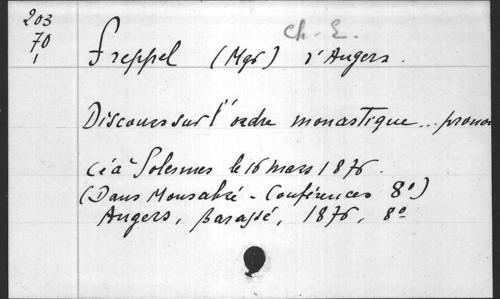 203
70
1
Ch. E.
Freppel (Mgr) d'Angers.
Discours sur l'ordre monastique... pronon
cé à Solesmes le 16 mars 1876.
(Dans Monsabré - Conférences 8°)
Angers, Barassé, 1876, 8°